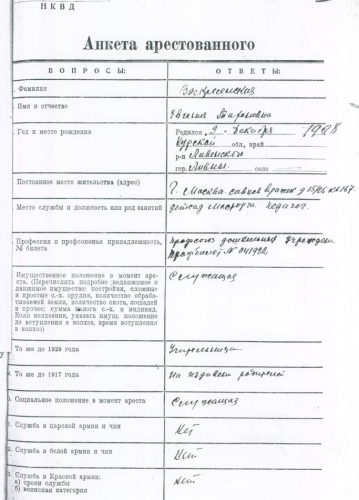 НКВД
Анкета арестованного
ВОПРОСЫ: ОТВЕТЫ:
Фамилия Воскресенская
Имя и отчество Евгения
Год и место рождения Родился 9 декабря
Курской обл., край
р-н Ливенского
гор. Ливны село
Постоянное место жительства (адрес) г. Москва
Место службы и должность или род занятий детсад педагог.
Профессия и профсоюзная принадлежность, № билета профсоюз дошкольных
Профбилет №
Имущественное положение в момент ареста. (Перечислить подробно недвижимое и движимое имущество: постройки, сложные и простые с.-х. орудия, количество обрабатываемой земли, количество скота, лошадей и прочее; сумма налога с.-х. и индивид. Если колхозник, указать имущ. положение до вступления в колхоз, время вступления в колхоз) Служащая
То же до 1929 года Учительница
То же до 1917 года На иждивении родителей
Социальное положение в момент ареста Служащая
1. Служба в царской армии и чин Нет
2. Служба в белой армии и чин Нет
3. Служба в Красной армии: Нет
а) сроки службы
б) воинская категория